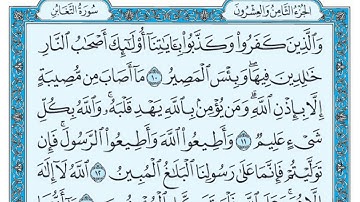 الجزء الثامن والعشرون
سورة التغابن
وَٱلَّذِينَ كَفَرُوا۟ وَكَذَّبُوا۟ بِـَٔايَٰتِنَآ أُو۟لَٰٓئِكَ أَصْحَٰبُ ٱلنَّارِ
خَٰلِدِينَ فِيهَا ۖ وَبِئْسَ ٱلْمَصِيرُ ١٠ مَآ أَصَابَ مِن مُّصِيبَةٍ
إِلَّا بِإِذْنِ ٱللَّهِ ۗ وَمَن يُؤْمِنۢ بِٱللَّهِ يَهْدِ قَلْبَهُۥ ۚ وَٱللَّهُ بِكُلِّ
شَىْءٍ عَلِيمٌ ١١ وَأَطِيعُوا۟ ٱللَّهَ وَأَطِيعُوا۟ ٱلرَّسُولَ ۚ فَإِن
تَوَلَّيْتُمْ فَإِنَّمَا عَلَىٰ رَسُولِنَا ٱلْبَلَٰغُ ٱلْمُبِينُ ١٢ ٱللَّهُ لَآ إِلَٰهَ